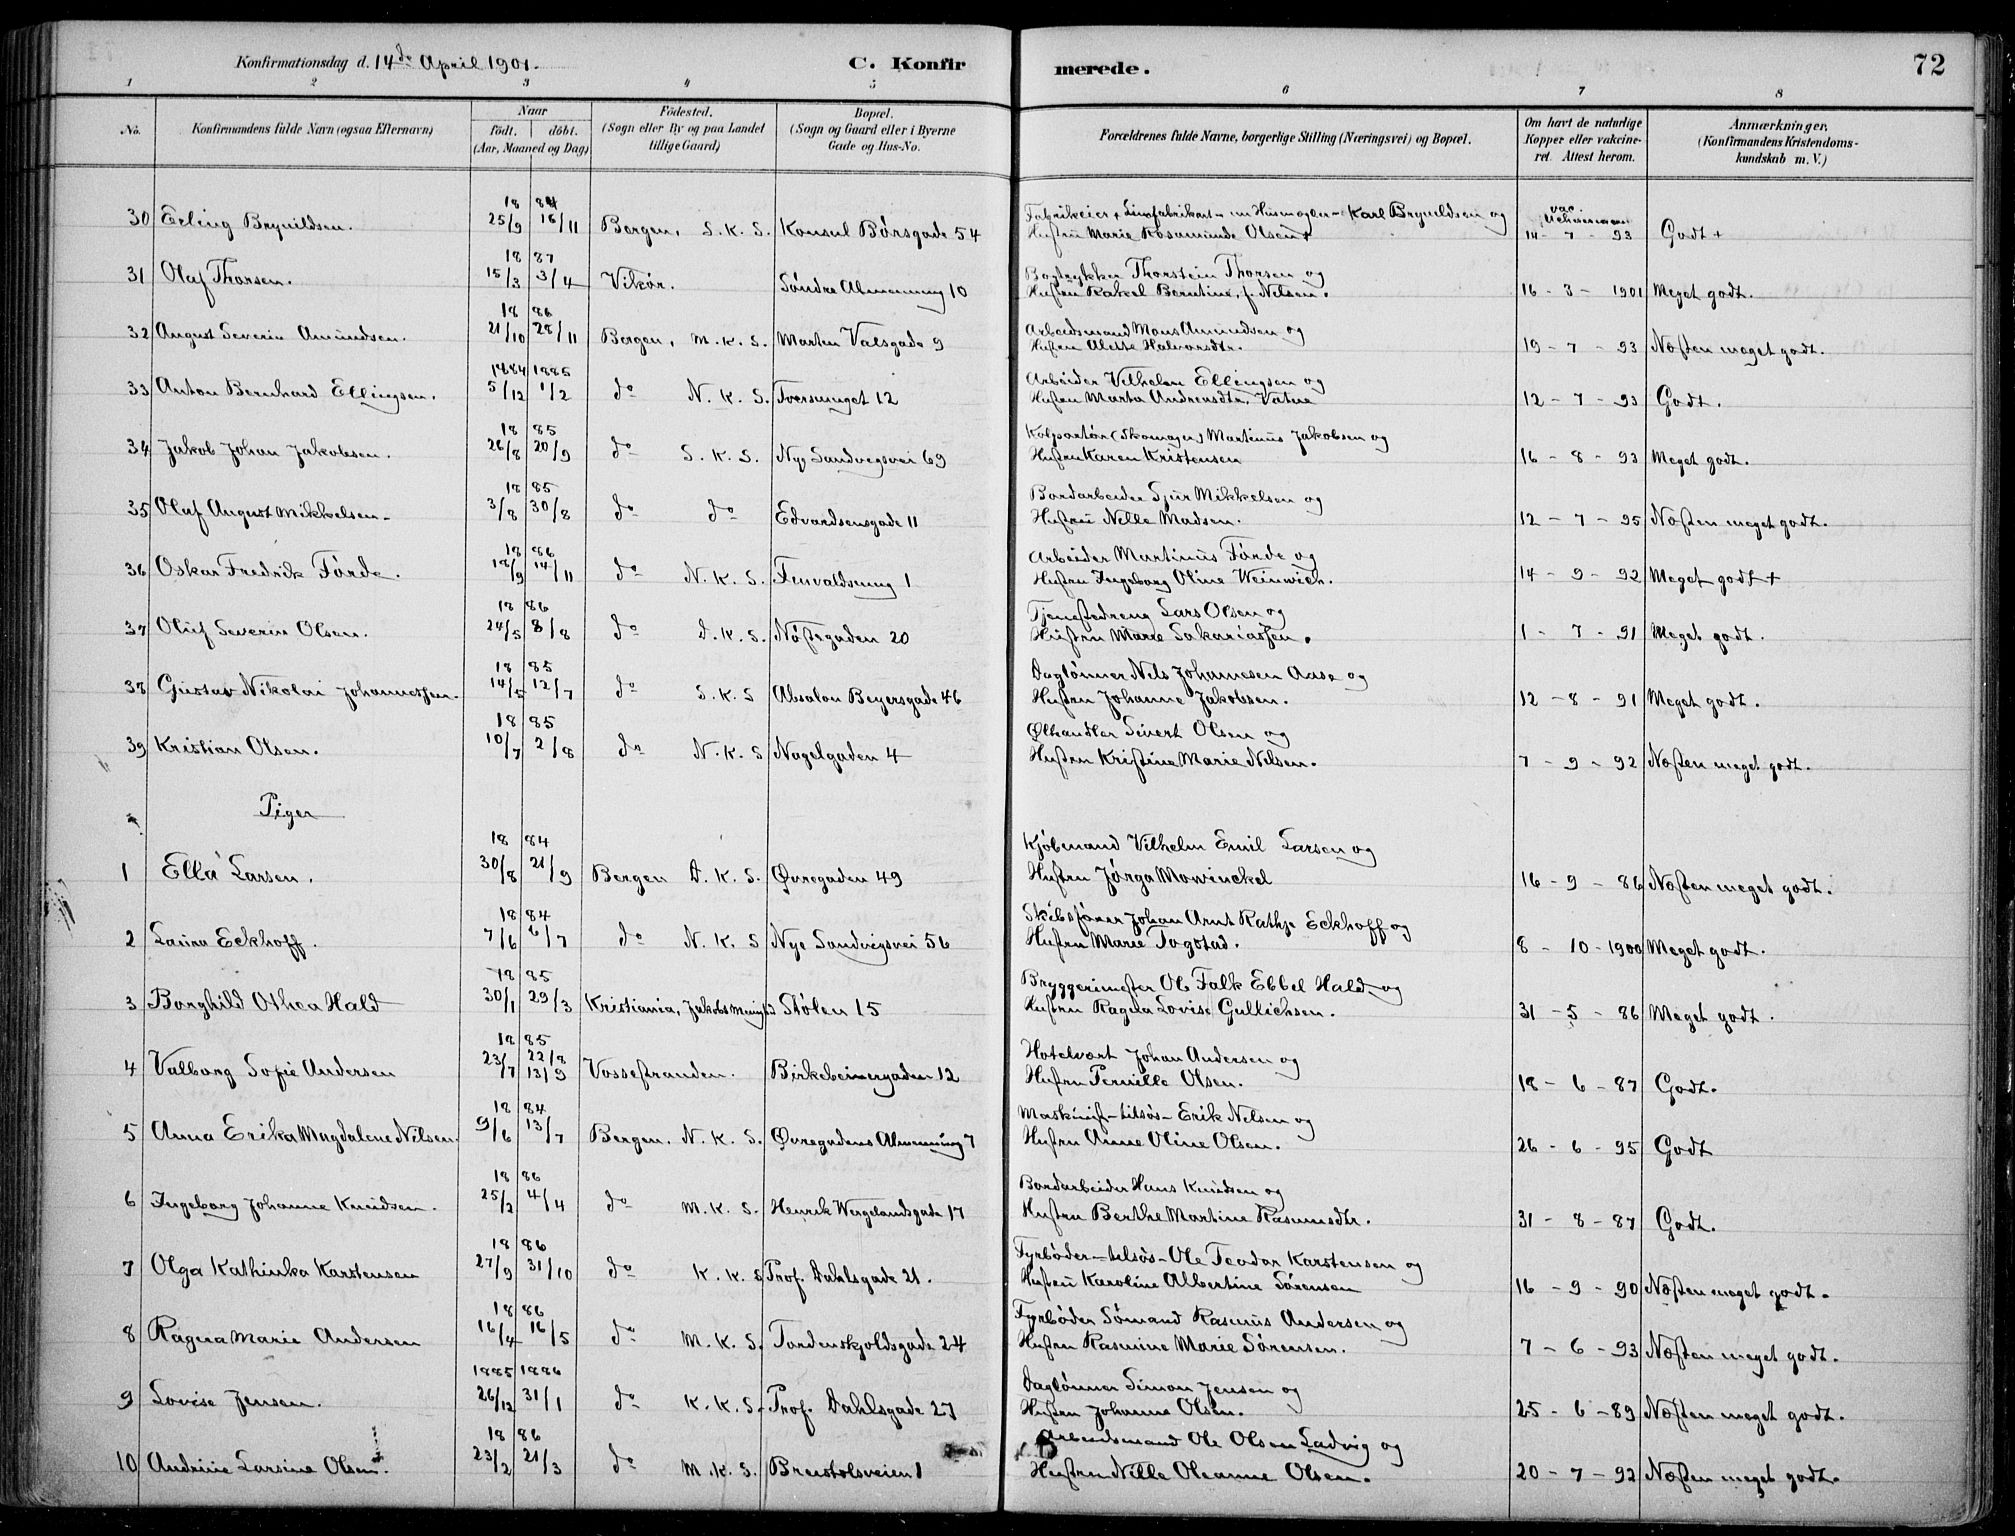 Konfirmationsdag d. 14de April 1901. C. Konfirmerede. 72
1 2 3 4 5 6 7 8
No. Konfirmandens fulde Navn (ogsaa Efternavn) Naar födt. döbt. (Aar, Maaned og Dag) Födested. (Sogn eller By og paa Landet tillige Gaard) Bopæl. (Sogn og Gaard eller i Byerne Gade og Hus-No. Forældrenes fulde Navne, borgerlige Stilling (Næringsvei) og Bopæl. Om havt de naturlige Kopper eller vakcineret. Attest herom. Anmærkninger. (Konfirmandens Kristendomskundskab m. V.)
30 Erling Brynildsen. 1884 25/9 16/11 Bergen, S. K. S. Konsul Börsgade 54 Fabrikeier Karl Brynildsen og Hustru Marie Rosamunde Olsen + vac. 14 - 7 - 93 Godt +
31 Olaf Thorsen. 1887 15/3 3/4 Vikör. Söndre Almenning 10 Bogtrykker Thorstein Thorsen og Hustru Rakel Berntine, f. Nilsen. 16 - 3 - 1901 Meget godt.
32 August Severin Amundsen. 1886 21/10 28/11 Bergen, M. K. S. Marten Valsgade 9 Arbeidsmand Mons Amundsen og Hustru Alette Halvorsdtr. 19 - 7 - 93 Næsten meget godt.
33 Anton Bernhard Ellingsen. 1884 1885 5/12 1/2 do N. K. S. Tversmuget 12 Arbeider Vilhelm Ellingsen og Hustru Marta Andreasdtr. Vatne 12 - 7 - 93 Godt.
34 Jakob Johan Jakobsen. 1885 26/8 20/9 do S. K. S. Nye Sandvigsvei 69 Kolportör (Skomager) Martinus Jakobsen og Hustru Karen Kristensen 16 - 8 - 93 Meget godt.
35 Olaf August Mikkelsen 1885 3/8 30/8 do do Edvardsensgade 11 Bordarbeider Sjur Mikkelsen og Hustru Nille Madsen. 12 - 7 - 95 Næsten meget godt.
36 Oskar Fredrik Förde. 1886 18/9 14/11 do N. K. S. 1 Arbeider Martinus Förde og Hustru Ingeborg Oline Weinwich. 14 - 9 - 92 Meget godt +
37 Oluf Severin Olsen. 1886 24/5 8/8 do D. K. S. Nöstegaden 20 Tjenestedreng Lars Olsen og Hustru Marie Sakariassen. 1 - 7 - 91 Meget godt.
38 Gustav Nikolai Johannessen. 1885 14/5 12/7 do S. K. S Absalon Beyersgade 46 Daglönner Nils Johannesen Aase og Hustru Johanne Jakobsen. 12 - 8 - 91 Meget godt.
39 Kristian Olsen. 1885 10/7 2/8 do N. K. S Nagelgaden 4 Ølhandler Sivert Olsen og Hustru Kristine Marie Nilsen. 7 - 9 - 92 Næsten meget godt.
Piger
1 Ella Larsen. 1884 30/8 21/9 Bergen D. K. S. Øvregaden 49 Kjöbmand Vilhelm Emil Larsen og Hustru Jörga Mowinckel 16 - 9 - 86 Næsten meget godt.
2 Laura Eckhoff. 1884 7/6 6/7 do N. K. S Nye Sandvigsvei 56 Skibsförer Johan Arnt Rathje Eckhoff og Hustru Marie Togstad. 8 - 10 - 1900 Meget godt.
3 Borghild Othea Hald 1885 30/1 29/3 Kristiania, Jakobs Menighd Stölen 15 Bryggerimester Ole Falk Ebbel Hald og Hustru Ragna Lovise Gullichsen. 31 - 5 - 86 Meget godt.
4 Valborg Sofie Andersen 1885 23/7 22/8 13/9 Vossestranden. Birkebeinergaden 12 Hotelvært Johan Andersen og Hustru Pernille Olsen. 18 - 6 - 87 Godt.
5 Anna Erika Magdalene Nilsen. 1884 9/6 13/7 Bergen. N. K. S. Øvregadens Almenning 7 Maskinist - tilsös - Erik Nilsen og Hustru Anne Oline Olsen. 26 - 6 - 95 Godt
6 Ingeborg Johanne Knudsen. 1886 25/2 4/4 do M. K. S. Henrik Wergelandsgade 17 Bordarbeider Hans Knudsen og Hustru Berthe Martine Rasmusdtr. 31 - 8 - 87 Godt.
7 Olga Kathinka Karstensen 1886 27/9 31/10 do K. K. S Prof. Dahlsgade 21. Fyrböder - tilsös - Ole Teodor Karstensen og Hustru Karoline Albertine Sörensen 16 - 9 - 90 Næsten meget godt.
8 Ragna Marie Andersen 1886 16/4 16/5 do M. K. S. Tordenskjoldsgade 24 Fyrböder Sömand Rasmus Andersen og Hustru Rasmine Marie Sörensen. 7 - 6 - 93 Næsten meget godt.
9 Lovise Jensen. 1885 1886 26/12 31/1 do K. K. S. Prof. Dahlsgade 27 Daglönner Simon Jensen og Hustru Johanne Olsen. 25 - 6 - 89 Næsten meget godt.
10 Andrine Larsine Olsen. 1886 23/2 21/3 do M. K. S. Breistolsveien 1 Arbeidsmand Ole Olsen Ladvig og Hustru Nille Oleanne Olsen. 20 - 7 - 92 Næsten meget godt.